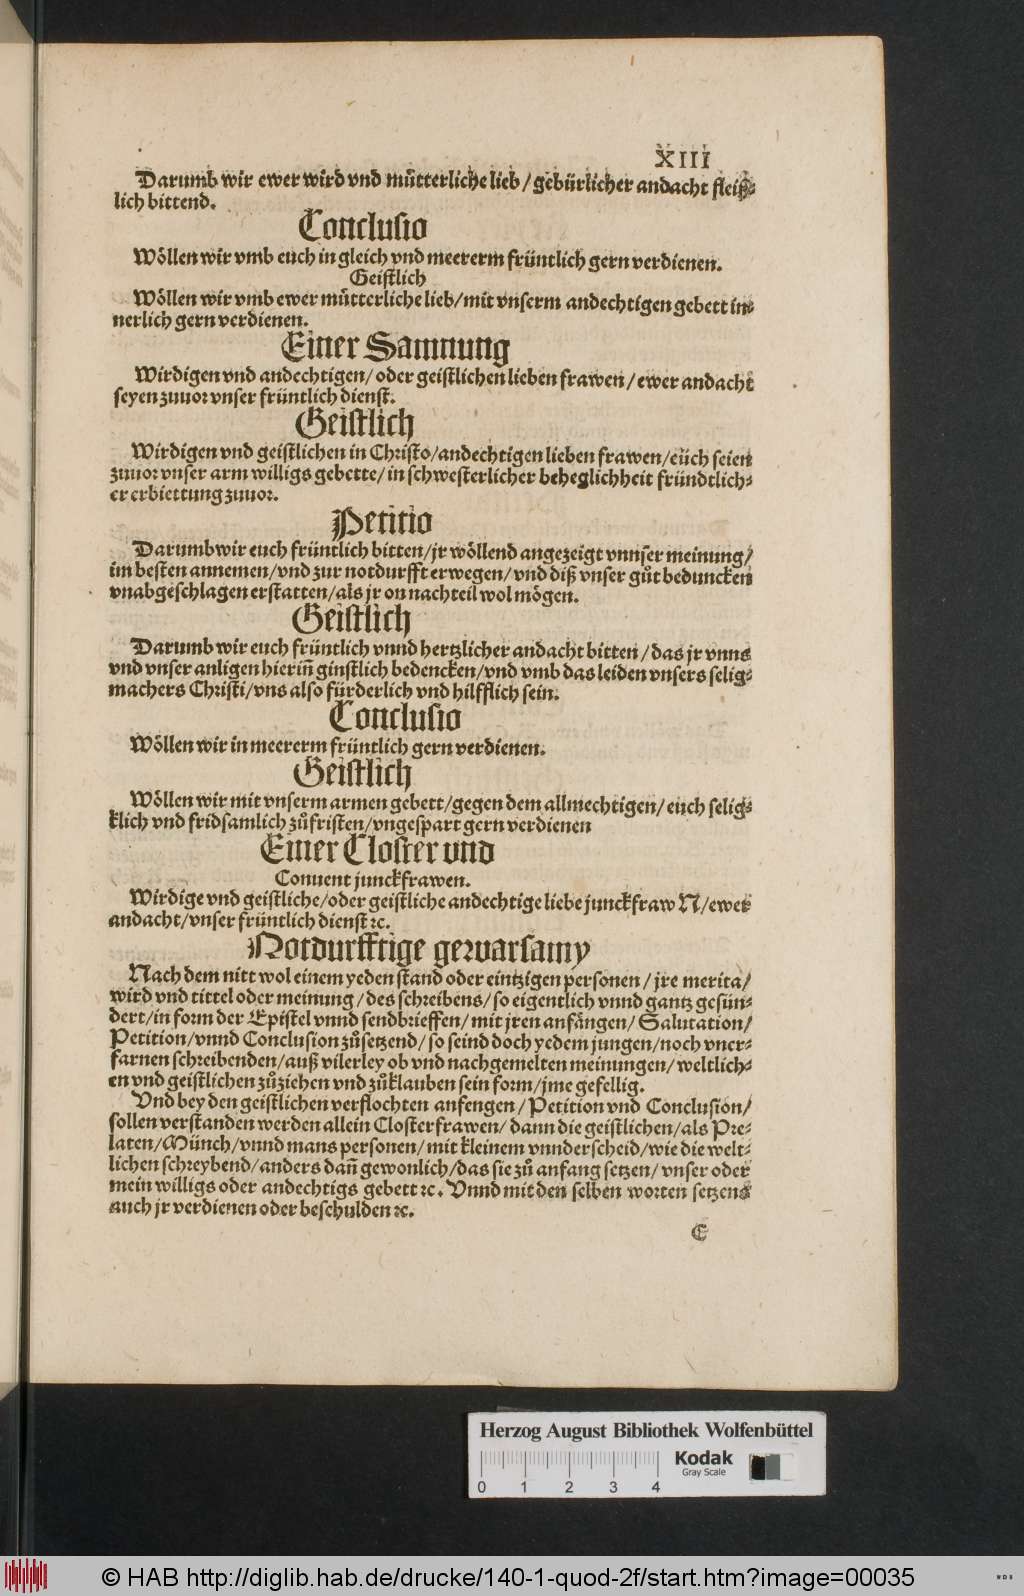 XIII
Darumb wir ewer wird vnd muͤtterliche lieb / gebürlicher andacht fleiß⸗
lich bittend.
Conclusio
Woͤllen wir vmb euch in gleich vnd meererm früntlich gern verdienen.
Geistlich
Woͤllen wir vmb ewer muͤtterliche lieb/mit vnserm andechtigen gebett in⸗
nerlich gern verdienen.
Einer Samnung
Wirdigen vnd andechtigen/ oder geistlichen lieben frawen / ewer andacht
seyen zuuor vnser früntlich dienst.
Geistlich
Wirdigen vnd geistlichen in Christo/andechtigen lieben frawen/eüch seien
zuuor vnser arm willigs gebette/ in schwesterlicher beheglichheit fründtlich⸗
er erbiettung zuuor.
Petitio
Darumb wir euch früntlich bitten/jr woͤllend angezeigt vnnser meinung/
im besten annemen/vnd zur notdurfft erwegen/ vnd diß vnser guͦt beduncken
vnabgeschlagen erstatten/als jr on nachteil wol moͤgen.
Geistlich
Darumb wir euch früntlich vnnd hertzlicher andacht bitten / das jr vnns
vnd vnser anligen hierin̄ ginstlich bedencken/vnd vmb das leiden vnsers selig⸗
machers Christi/vns also fürderlich vnd hilfflich sein.
Conclusio
Woͤllen wir in meererm früntlich gern verdienen.
Geistlich
Woͤllen wir mit vnserm armen gebett/gegen dem allmechtigen/ euch selig⸗
klich vnd fridsamlich zuͦfristen/vngespart gern verdienen
Einer Closter vnd
Conuent junckfrawen.
Wirdige vnd geistliche/oder geistliche andechtige liebe junckfraw N/ewer
andacht/vnser früntlich dienst ꝛc.
Notdurfftige gewarsamy
Nach dem nitt wol einem yeden stand oder eintzigen personen / jre merita/
wird vnd tittel oder meinung / des schreibens/ so eigentlich vnnd gantz gesün⸗
dert/in form der Epistel vnnd sendbrieffen/ mit jren anfängen/ Salutation/
Petition/vnnd Conclusion zuͦsetzend/ so seind doch yedem jungen/noch vner⸗
farnen schreibenden/auß vilerley ob vnd nachgemelten meinungen/ weltlich⸗
en vnd geistlichen zuͦziehen vnd zuͦklauben sein form/jme gefellig.
Vnd bey den geistlichen verflochten anfengen / Petition vnd Conclusion/
sollen verstanden werden allein Closterfrawen/ dann die geistlichen/als Pre⸗
laten/Münch/vnnd mans personen/ mit kleinem vnnderscheid/wie die welt⸗
lichen schreybend/anders dan̄ gewonlich/das sie zuͦ anfang setzen/ vnser oder
mein willigs oder andechtigs gebett ꝛc. Vnnd mit den selben worten setzens
auch jr verdienen oder beschulden ꝛc.
E
Herzog August Bibliothek Wolfenbüttel
Kodak
Gray Scale
0 1 2 3 4
© HAB http://diglib.hab.de/drucke/140-1-quod-2f/start.htm?image=00035